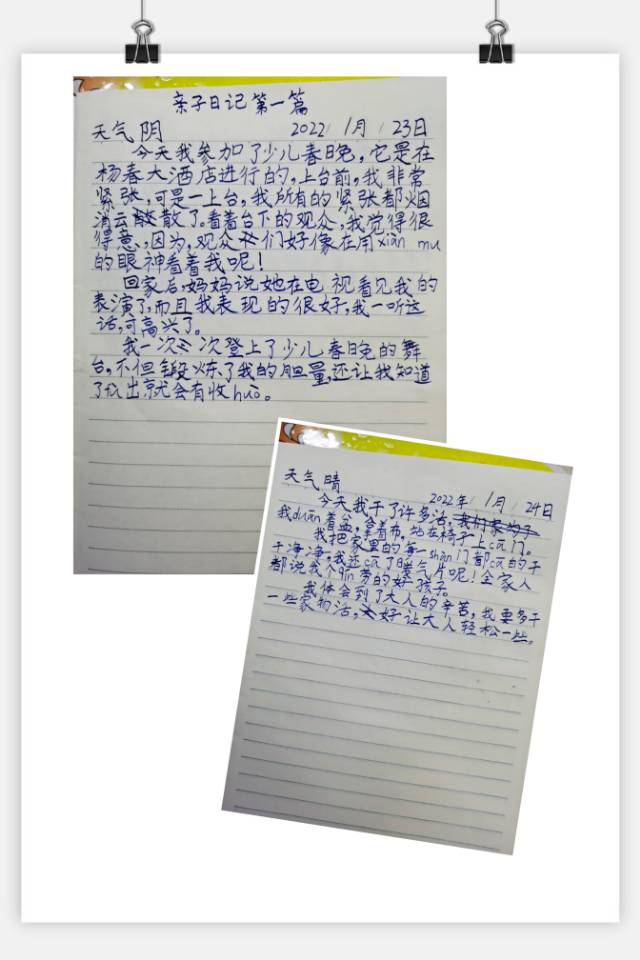 亲子日记第一篇
天气阴 2022 1月 23日
今天我参加了少儿春晚,它是在
杨春大酒店进行的,上台前,我非常
紧张,可是一上台,我所有的紧张都烟
消云散了。看着台下的观众,我觉得很
得意,因为,观众们好像在用xiàn mù
的眼神看着我呢!
回家后,妈妈说她在电视看见我的
表演了,而且我表现的很好,我一听这
话,可高兴了。
我一次三次登上了少儿春晚的舞
台,不但锻炼了我的胆量,还让我知道
了付出就会有收huò。
天气晴
2022年 1月 24日
今天我干了许多活,我们家为了
我duān着盆,拿着布,站在椅子上cā门。
我把家里的每一shàn门都cā的干
干净净,我还cā了暖气片呢!全家人
都说我个qín劳的好孩子。
我体会到了大人的辛苦,我要多干
一些家物活,好让大人轻松一些。